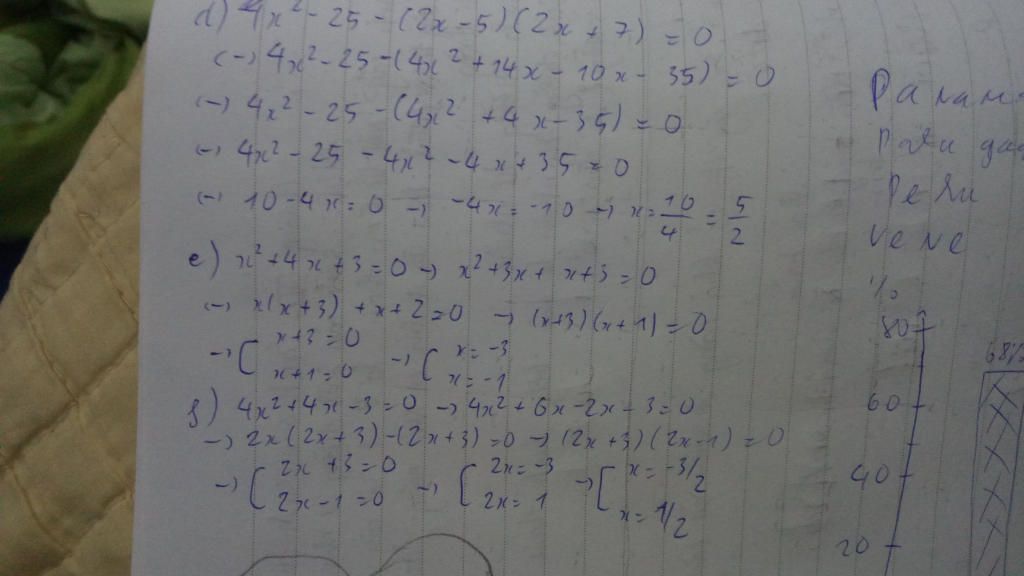 d) 4x² - 25 - (2x - 5)(2x + 7) = 0
(→) 4x² - 25 - (4x² + 14x - 10x - 35) = 0
(→) 4x² - 25 - (4x² + 4x - 35) = 0
(→) 4x² - 25 - 4x² - 4x + 35 = 0
(→) 10 - 4x = 0 → -4x = -10 → x = 10/4 = 5/2
e) x² + 4x + 3 = 0 → x² + 3x + x + 3 = 0
(→) x(x + 3) + x + 2 = 0 → (x+3)(x+1) = 0
→ [ x+3 = 0 → [ x = -3
x+1 = 0 x = -1
f) 4x² + 4x - 3 = 0 → 4x² + 6x - 2x - 3 = 0
→ 2x(2x+3) - (2x+3) = 0 → (2x+3)(2x-1) = 0
→ [ 2x + 3 = 0 → [ 2x = -3 → [ x = -3/2
2x - 1 = 0 2x = 1 x = 1/2
%
80
68%
60
40
20